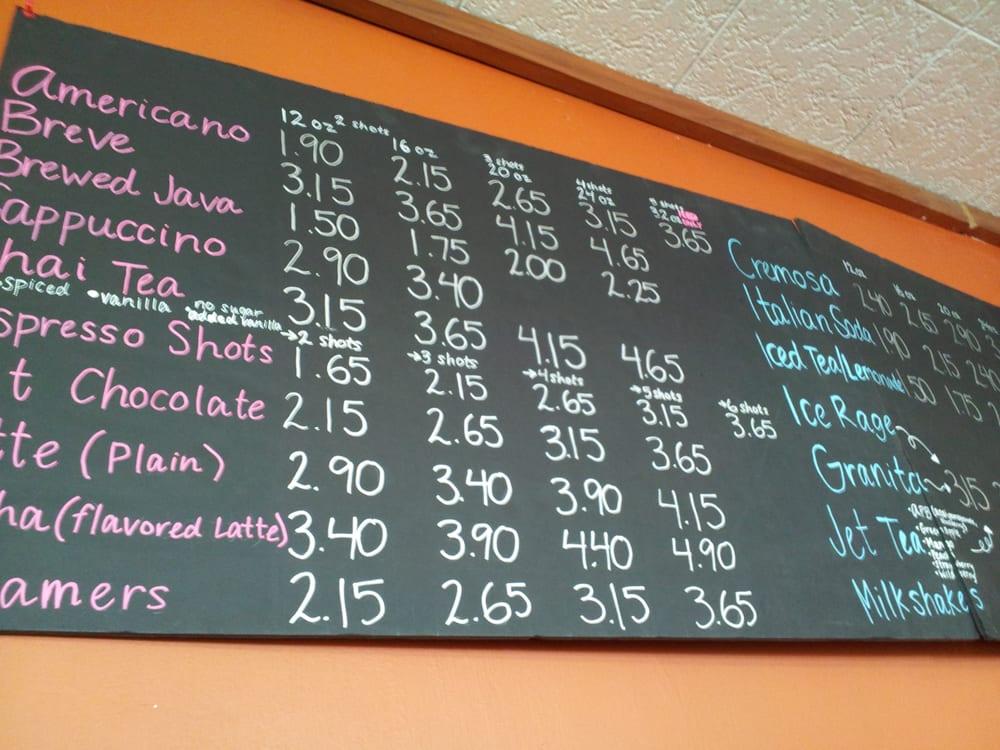 12 oz 2 shots 16 oz 3 shots 20 oz 4 shots 24 oz 5 shots 32 oz ONLY
Americano 1.90 2.15 2.65 3.15 3.65
Breve 3.15 3.65 4.15 4.65
Brewed Java 1.50 1.75 2.00 2.25
appuccino 2.90 3.40
hai Tea 3.15 3.65 4.15 4.65
spiced • vanilla no sugar added vanilla
→2 shots →3 shots →4 shots →5 shots →6 shots
spresso Shots 1.65 2.15 2.65 3.15 3.65
t Chocolate 2.15 2.65 3.15 3.65
tte (Plain) 2.90 3.40 3.90 4.15
ha (flavored Latte) 3.40 3.90 4.40 4.90
amers 2.15 2.65 3.15 3.65
12 oz 16 oz 20 oz
Cremosa 2.40 2.65 2.90
Italian Soda 1.90 2.15 2.40
Iced Tea/Lemonade 1.50 1.75
Ice Rage
Granita 3.15
Jet Tea
Milkshakes